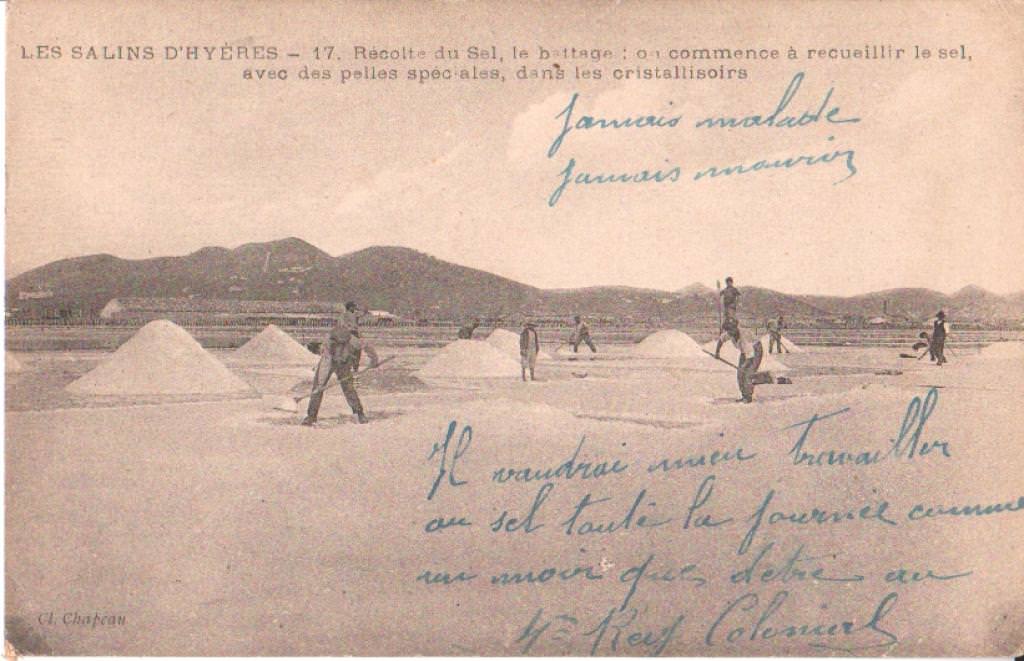 LES SALINS D'HYÈRES — 17. Récolte du Sel, le battage : on commence à recueillir le sel,
avec des pelles spéciales, dans les cristallisoirs
Jamais malade
jamais mourir
Il vaudrai mieu travailler
au sel touté la journée comme
un noir que detre au
4e Colonial
Cl. Chapeau